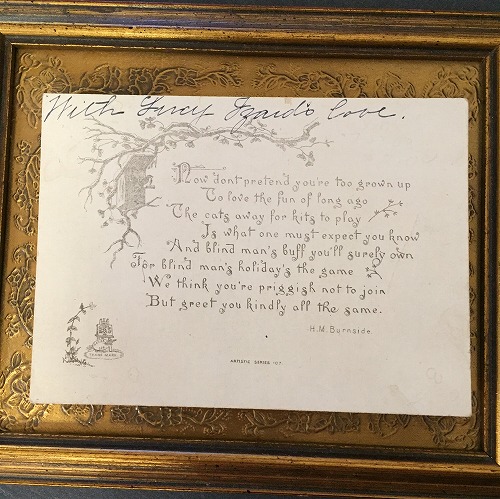 With Lucy Izard's love.
Now dont pretend you're too grown up
To love the fun of long ago
The cats away for kits to play
Is what one must expect you know
And blind man's buff you'll surely own
For blind man's holiday's the game
We think you're priggish not to join
But greet you kindly all the same.
H.M. Burnside.
TRADE MARK
ARTISTIC SERIES